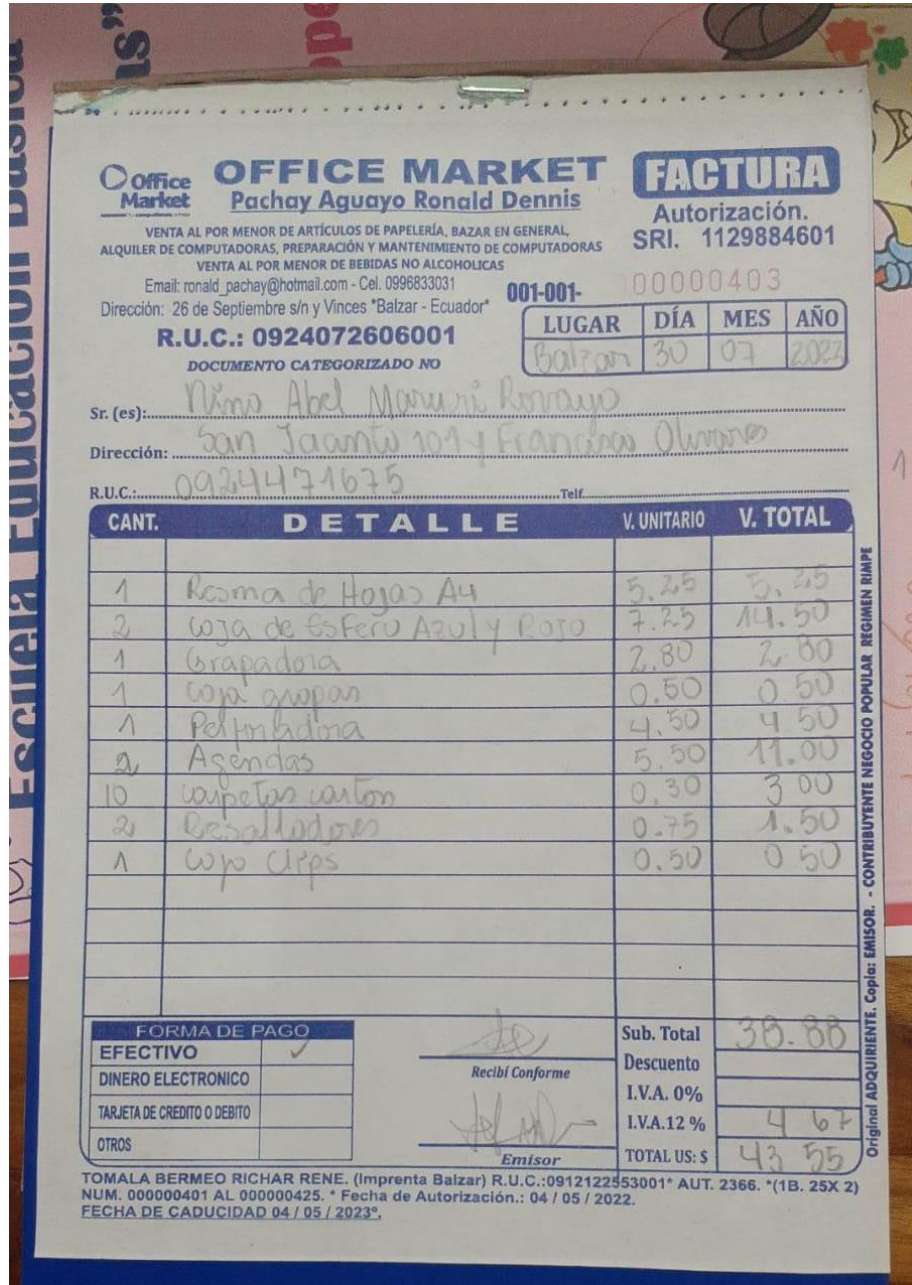 Escuela Educación Básica
as"
Office Market
OFFICE MARKET
Pachay Aguayo Ronald Dennis
VENTA AL POR MENOR DE ARTÍCULOS DE PAPELERÍA, BAZAR EN GENERAL,
ALQUILER DE COMPUTADORAS, PREPARACIÓN Y MANTENIMIENTO DE COMPUTADORAS
VENTA AL POR MENOR DE BEBIDAS NO ALCOHOLICAS
Email: ronald_pachay@hotmail.com - Cel. 0996833031
Dirección: 26 de Septiembre s/n y Vinces "Balzar - Ecuador"
R.U.C.: 0924072606001
DOCUMENTO CATEGORIZADO NO
FACTURA
Autorización.
SRI. 1129884601
001-001- 00000403
LUGAR DÍA MES AÑO
Balzar 30 07 2022
Sr. (es): Nino Abel Maruri Rovayo
Dirección: San Jacinto 101 y Francisco Olivares
R.U.C.: 0924471675 Telf.
CANT. DETALLE V. UNITARIO V. TOTAL
1 Resma de Hojas A4 5.25 5.25
2 Caja de Esfero Azul y Rojo 7.25 14.50
1 Grapadora 2.80 2.80
1 Caja grapas 0.50 0.50
1 Perforadora 4.50 4 50
2 Agendas 5.50 11.00
10 carpetas carton 0.30 3 00
2 Resaltadores 0.75 1.50
1 Caja Clips 0.50 0 50
FORMA DE PAGO
EFECTIVO ✓
DINERO ELECTRONICO
TARJETA DE CREDITO O DEBITO
OTROS
Recibí Conforme
Emisor
Sub. Total 38.88
Descuento
I.V.A. 0%
I.V.A.12 % 4 67
TOTAL US: $ 43 55
Original ADQUIRIENTE. Copia: EMISOR. - CONTRIBUYENTE NEGOCIO POPULAR REGIMEN RIMPE
TOMALA BERMEO RICHAR RENE. (Imprenta Balzar) R.U.C.:0912122553001* AUT. 2366. *(1B. 25X 2)
NUM. 000000401 AL 000000425. * Fecha de Autorización.: 04 / 05 / 2022.
FECHA DE CADUCIDAD 04 / 05 / 2023º.